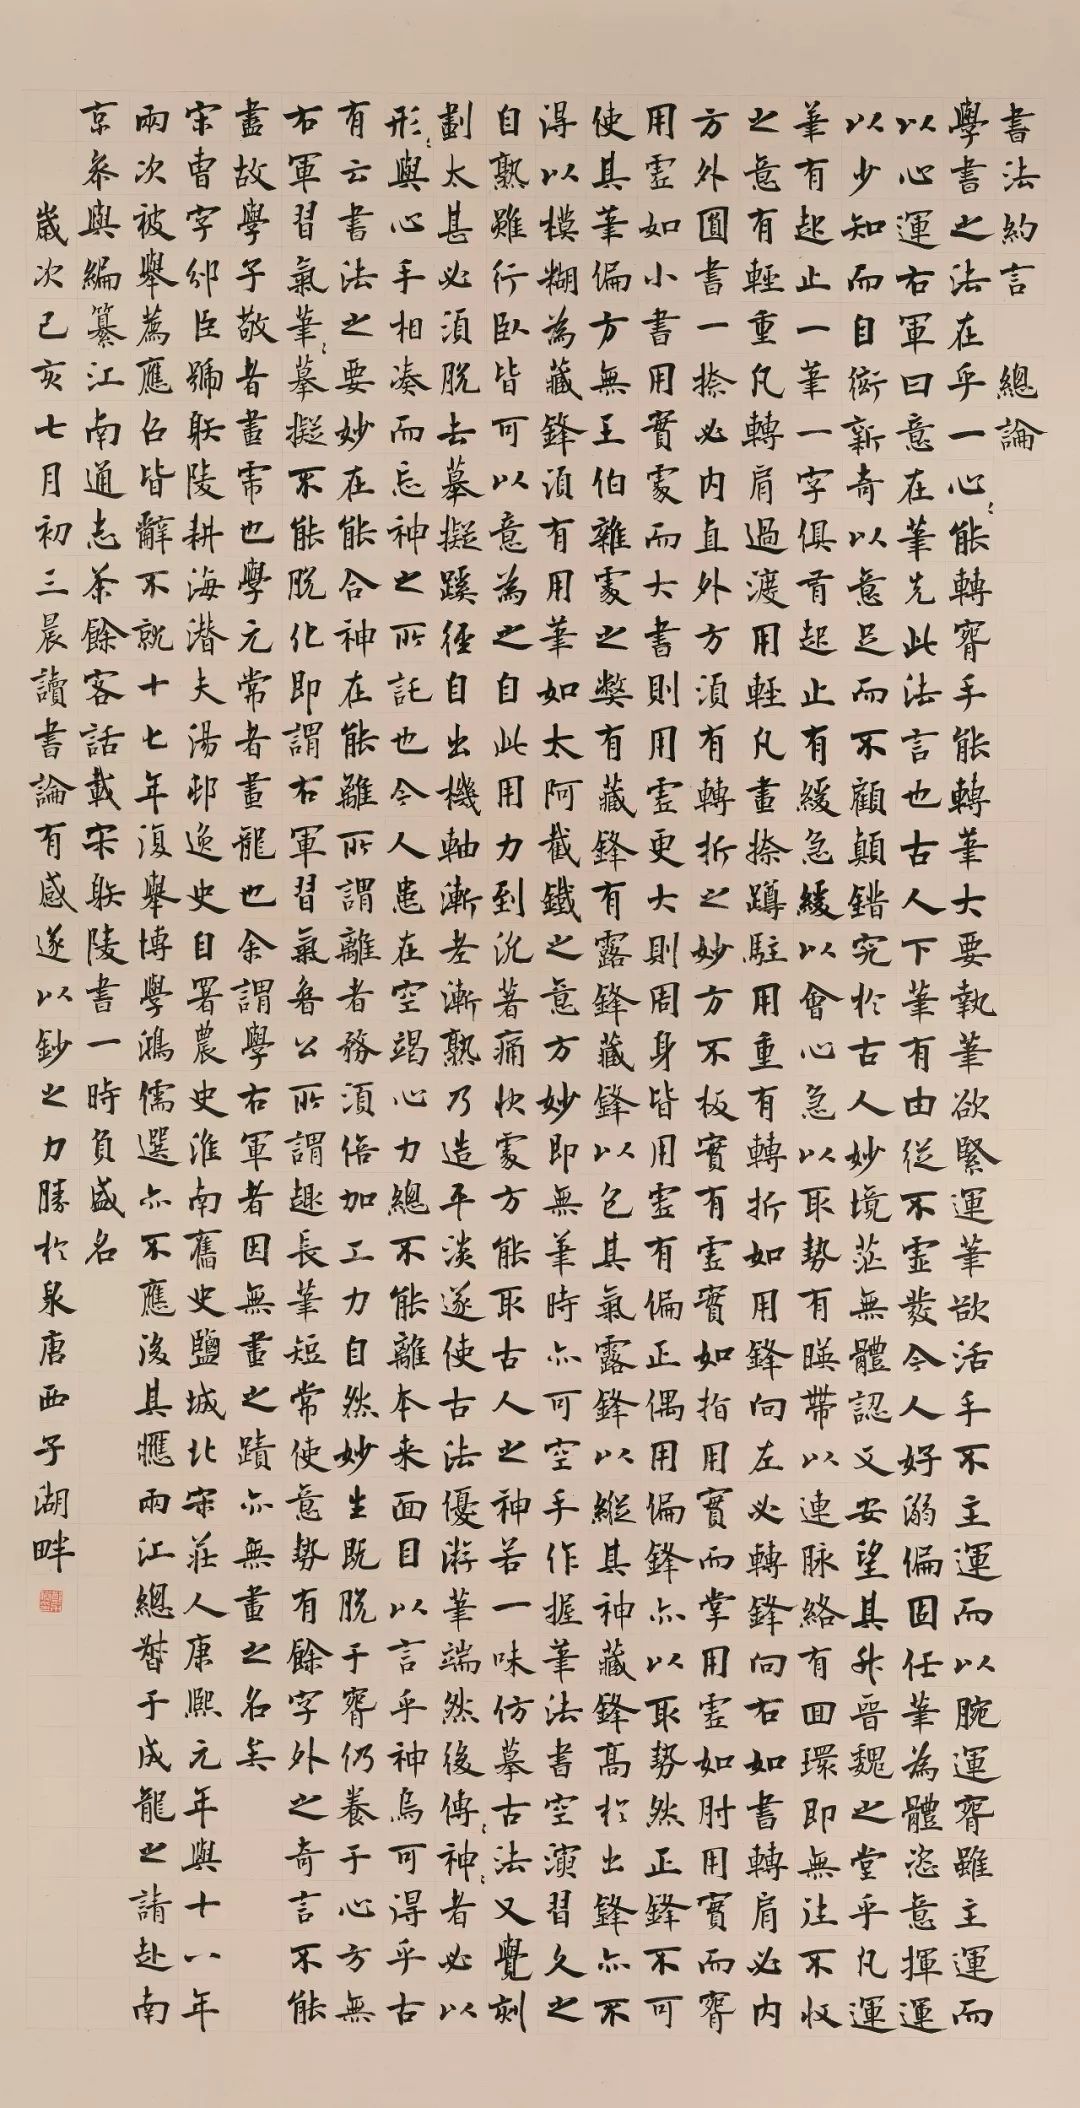 書法約言　總論
學書之法在乎一心〻能轉腕手能轉筆大要執筆欲緊運筆欲活手不主運而以腕運腕雖主運而
以心運右軍曰意在筆先此法言也古人下筆有由從不虛發今人好溺偏固任筆為體恣意揮運
以少知而自衒新奇以意足而不顧顛錯究於古人妙境茫無體認又安望其升晉魏之堂乎凡運
筆有起止一筆一字俱有起止有緩急緩以會心急以取勢有暎帶以連脉絡有回環即無往不收
之意有輕重凡轉肩過渡用輕凡畫捺蹲駐用重有轉折如用鋒向左必轉鋒向右如書轉肩必內
方外圓書一捺必內直外方須有轉折之妙方不板實有虛實如指用實而掌用虛如肘用實而腕
用虛如小書用實處而大書則用虛更大則周身皆用虛有偏正偶用偏鋒亦以取勢然正鋒不可
使其筆偏方無王伯雜處之獘有藏鋒有露鋒藏鋒以包其氣露鋒以縱其神藏鋒高於出鋒亦不
得以模糊為藏鋒須有用筆如太阿截鐵之意方妙即無筆時亦可空手作握筆法書空演習久之
自熟雖行臥皆可以意為之自此用力到沉著痛快處方能取古人之神若一味仿摹古法又覺刻
劃太甚必須脫去摹擬蹊徑自出機軸漸老漸熟乃造平淡遂使古法優游筆端然後傳〻神〻者必以
形〻與心手相湊而忘神之所託也今人患在空竭心力總不能離本来面目以言乎神烏可得乎古
有云書法之要妙在能合神在能離所謂離者務須倍加工力自然妙生既脫于腕仍養于心方無
右軍習氣筆〻摹擬不能脫化即謂右軍習氣魯公所謂趣長筆短常使意勢有餘字外之奇言不能
盡故學子敬者畫帚也學元常者畫龍也余謂學右軍者因無畫之蹟亦無畫之名矣
宋曹字邠臣號躾陵耕海潛夫湯邨逸史自署農史淮南舊史鹽城北宋莊人康熙元年與十八年
兩次被舉薦應召皆辭不就十七年復舉博學鴻儒選亦不應後其應兩江總督于成龍之請赴南
京參與編纂江南通志茶餘客話載宋躾陵書一時負盛名
歲次己亥七月初三晨讀書論有感遂以鈔之力勝於泉唐西子湖畔